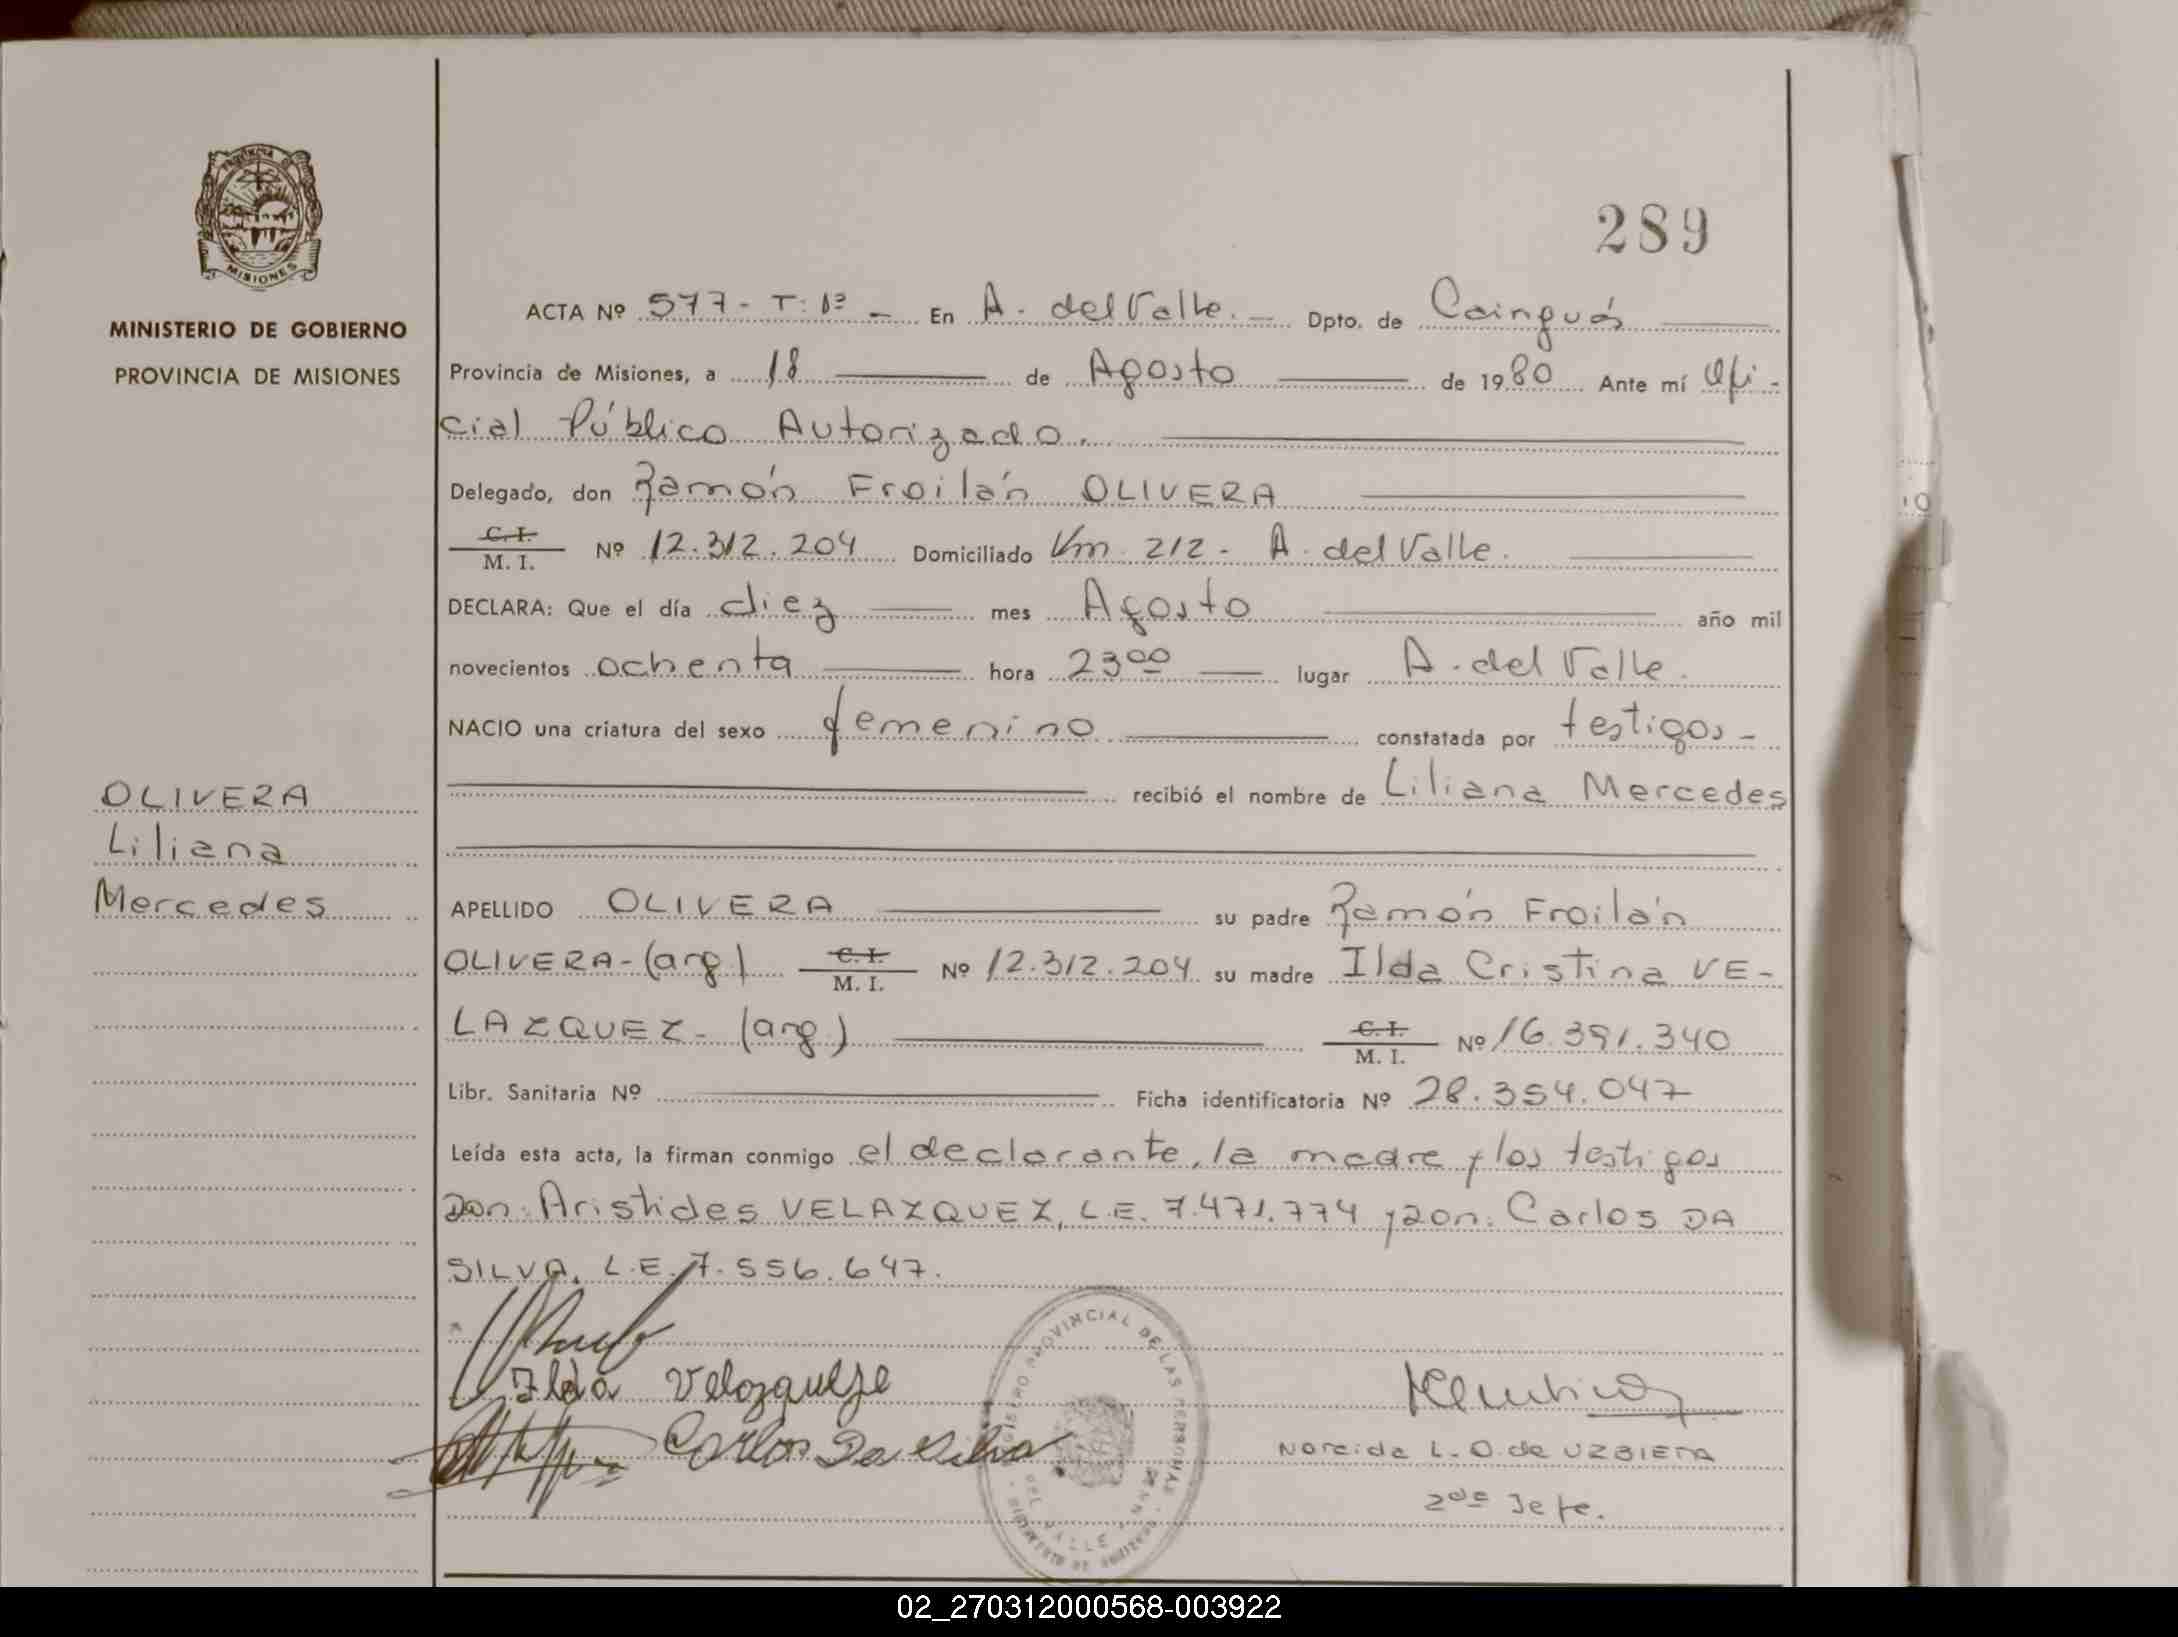 289
MINISTERIO DE GOBIERNO
PROVINCIA DE MISIONES
OLIVERA
Liliana
Mercedes
ACTA Nº 577- T: 1º - En A. del Valle. - Dpto. de Cainguás
Provincia de Misiones, a 18 de Agosto de 1980 Ante mí Ofi-
cial Público Autorizado.
Delegado, don Ramón Froilán OLIVERA
C. I. M. I. Nº 12.312.204 Domiciliado Km. 212- A. del Valle.
DECLARA: Que el día diez mes Agosto año mil
novecientos ochenta hora 23 00 lugar A. del Valle.
NACIO una criatura del sexo femenino constatada por testigos-
recibió el nombre de Liliana Mercedes
APELLIDO OLIVERA su padre Ramón Froilán
OLIVERA-(arg) C. I. M. I. Nº 12.312.204 su madre Ilda Cristina VE-
LAZQUEZ- (arg.) C. I. M. I. Nº 16.391.340
Libr. Sanitaria Nº Ficha identificatoria Nº 28.354.047
Leída esta acta, la firman conmigo el declarante, la madre y los testigos
Don: Aristides VELAZQUEZ, L.E. 7.471.774 y Don: Carlos DA
SILVA, L.E. 7.556.647.
Ilda Velozqueze
Carlos Da Silva
REGISTRO PROVINCIAL DE LAS PERSONAS
DEL VALLE
MISIONES
Norcida L. O. de URBIETA
2da Jefe.
02_270312000568-003922